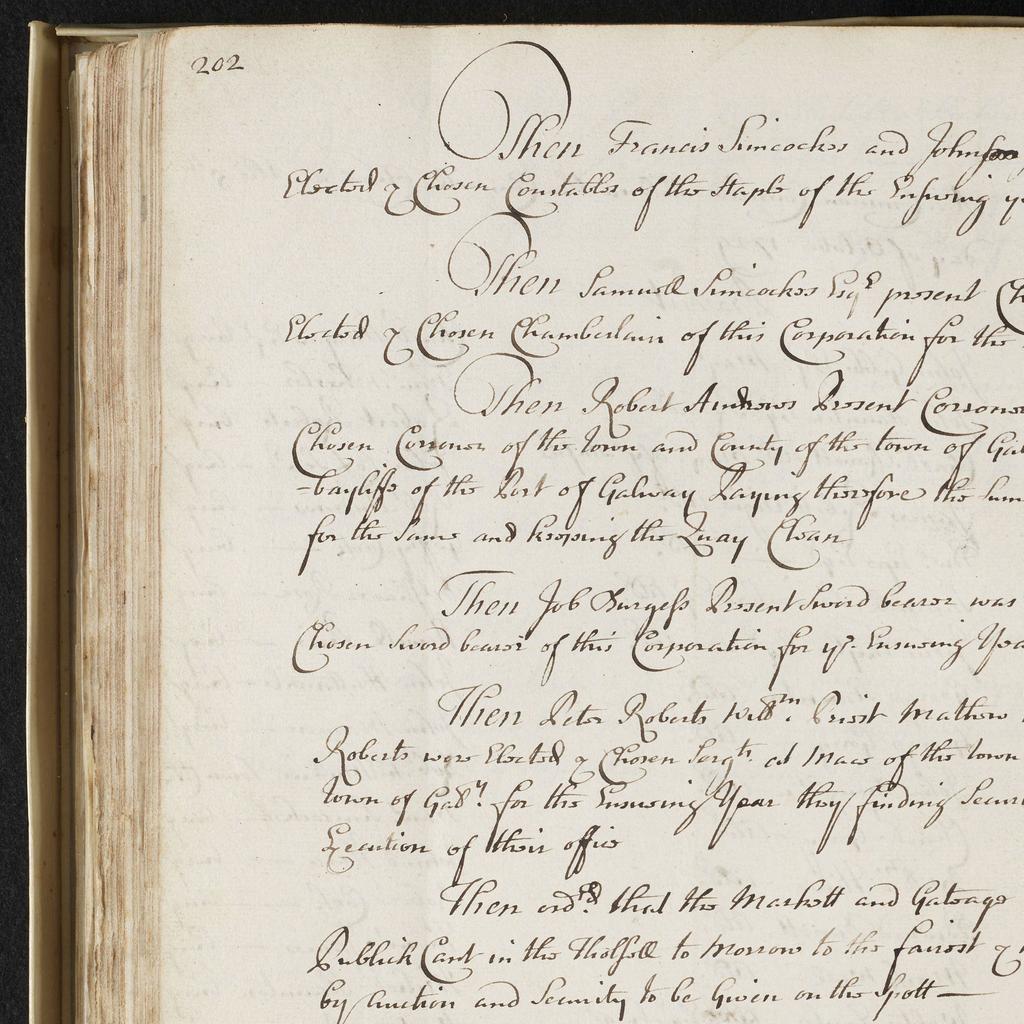 202
Then Francis Simcockes and John
Elected & Chosen Constables of the Staple of the Ensuing
Then Samuell Simcockes Esqr present Ch
Elected & Chosen Chamberlain of this Corporation for the
Then Robert Andrews Present Corroner
Chosen Corroner of the town and County of the town of Gal
-bayliffe of the Port of Galway Paying therefore the Sum
for the Same and keeping the Quay Clean
Then Job Burgess Present Sword bearer was
Chosen Sword bearer of this Corporation for ye Ensuing Yea
Then Peter Roberts Willm. Priest Mathew
Roberts were Elected & Chosen Sergts. at Mace of the town
town of Gally. for the Ensuing Year they finding Secur
Execution of their office
Then ordrd. that the Markett and Gateage
Publick Cant in the Tholsell to Morrow to the fairest &
by Auction and Security to be Given on the Spott —